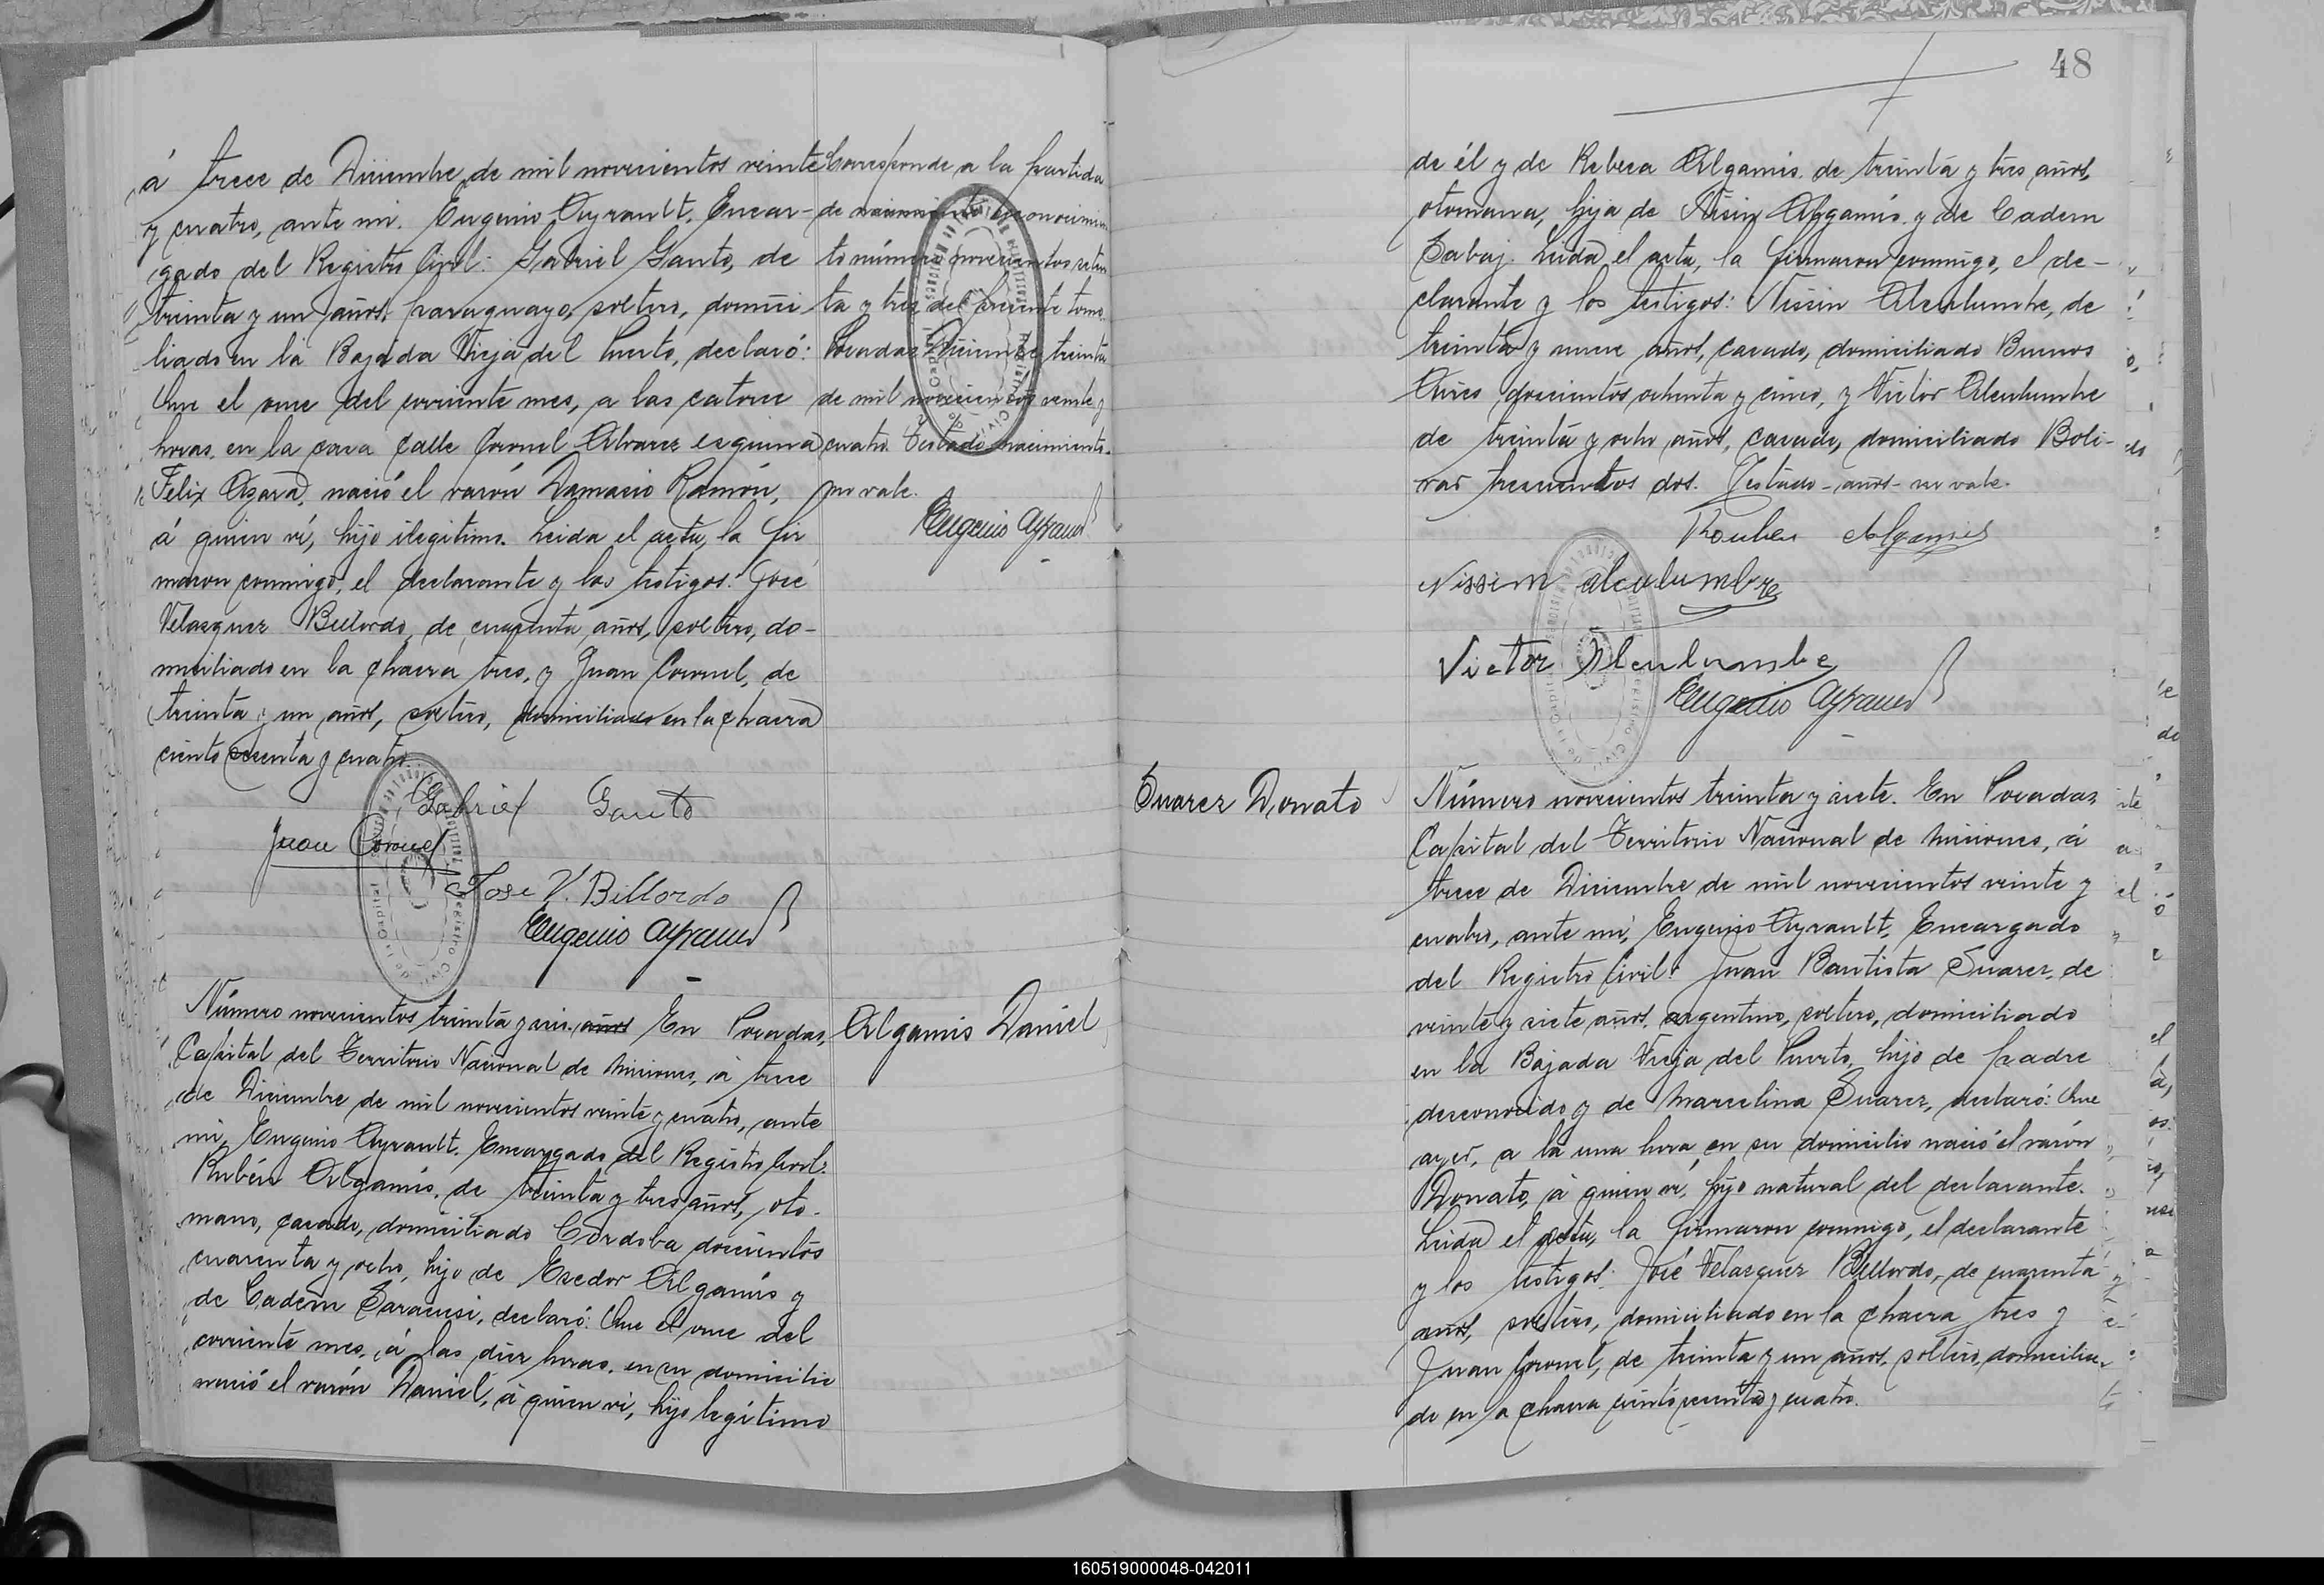 á trece de Diciembre de mil novecientos veinte
y cuatro, ante mi. Eugenio Ayrault. Encar-
gado del Registro Civil: Gabriel Gauto, de
treinta y un años, paraguayo, soltero, domici-
liado en la Bajada Vieja del Puerto, declaró:
Que el once del corriente mes, a las catorce
horas, en la casa calle Coronel Alvarez esquina
Felix Azara, nació el varón Damacio Ramón,
á quien ví, hijo ilegitimo. Leida el acta, la fir
maron conmigo, el declarante y los testigos: José
Velazquez Billordo, de cuarenta años, soltero, do-
miciliado en la chacra tres, y Juan Coronel, de
treinta y un años, soltero, domiciliado en la chacra
ciento y cuatro.
Corresponde a la partida
de nacimiento reconocimien
to número novecientos seten
ta y tres del presente tomo.
Posadas Diciembre treinta
de mil novecientos veinte y
cuatro. Testado nacimiento-
no vale.
Eugenio Ayrault
Gabriel Gauto
Juan Coronel
Jose V. Billordo
Eugenio Ayrault
Número novecientos treinta y seis. años En Posadas,
Capital del Territorio Nacional de Misiones, á trece
de Diciembre de mil novecientos veinte y cuatro, ante
mi, Eugenio Ayrault. Encargado del Registro Civil:
Rubén Algamis, de treinta y tres años, oto-
mano, casado, domiciliado Córdoba doscientos
cuarenta y ocho, hijo de Esedor Algamis y
de Cadem Saracusi, declaró: Que el once del
corriente mes, á las diez horas, en su domicilio
nació el varón Daniel, á quien ví, hijo legítimo
Algamis Daniel
48
de él y de Rebeca Algamis, de treinta y tres años,
otomana, hija de Nisin Algamis y de Cadem
Sabaj. Leida el acta, la firmaron conmigo, el de-
clarante y los testigos: Nissin Alcalumbre, de
treinta y nueve años, casado, domiciliado Buenos
Aires doscientos ochenta y cinco, y Victor Alculumbre
de treinta y ocho años, casado, domiciliado Boli-
var trescientos dos. Testado - años - no vale.
Rouben Algamis
Nissim alculumbre
Victor Alculumbre
Eugenio Ayrault
Suarez Donato
Número novecientos treinta y siete. En Posadas
Capital del Territorio Nacional de Misiones, á
trece de Diciembre de mil novecientos veinte y
cuatro, ante mi, Eugenio Ayrault, Encargado
del Registro Civil: Juan Bautista Suarez, de
veinte y siete años, argentino, soltero, domiciliado
en la Bajada Vieja del Puerto, hijo de padre
desconocido y de Marcelina Suarez, declaró: Que
ayer, a la una hora, en su domicilio nació el varón
Donato, á quien ví, hijo natural del declarante.
Leida el acta, la firmaron conmigo, el declarante
y los testigos: José Velazquez Billordo, de cuarenta
años, soltero, domiciliado en la chacra tres y
Juan Coronel, de treinta y un años, soltero, domicilia-
do en la chacra ciento y cuatro.
160519000048-042011